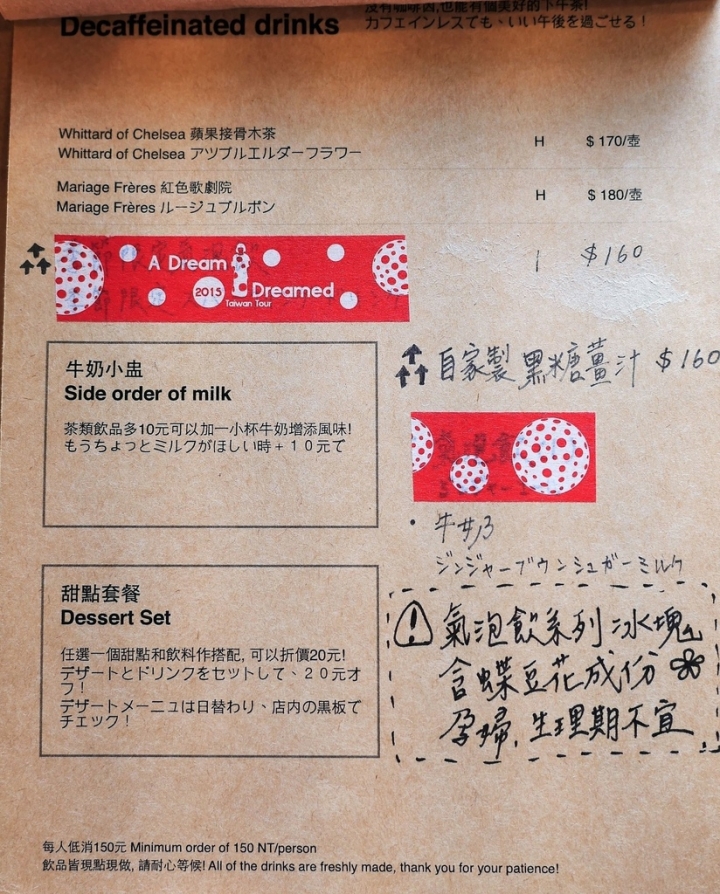 Decaffeinated drinks
沒有咖啡因,也能有個美好的下午茶!
カフェインレスでも、いい午後を過ごせる！
Whittard of Chelsea 蘋果接骨木茶
Whittard of Chelsea アツプルエルダーフラワー
H $ 170/壺
Mariage Frères 紅色歌劇院
Mariage Frères ルージュブルボン
H $ 180/壺
A Dream
2015 Dreamed
Taiwan Tour
I $160
自家製 黑糖薑汁 $160
牛奶小盅
Side order of milk
茶類飲品多10元可以加一小杯牛奶增添風味!
もうちょっとミルクがほしい時＋１０元で
・牛奶
ジンジャーブウンシュガーミルク
甜點套餐
Dessert Set
任選一個甜點和飲料作搭配, 可以折價20元!
デザートとドリンクをセットして、２０元オ
フ！
デザートメーニュは日替わり、店内の黒板で
チェック！
氣泡飲系列冰塊
含蝶豆花成份
孕婦,生理期不宜
每人低消150元 Minimum order of 150 NT/person
飲品皆現點現做, 請耐心等候! All of the drinks are freshly made, thank you for your patience!